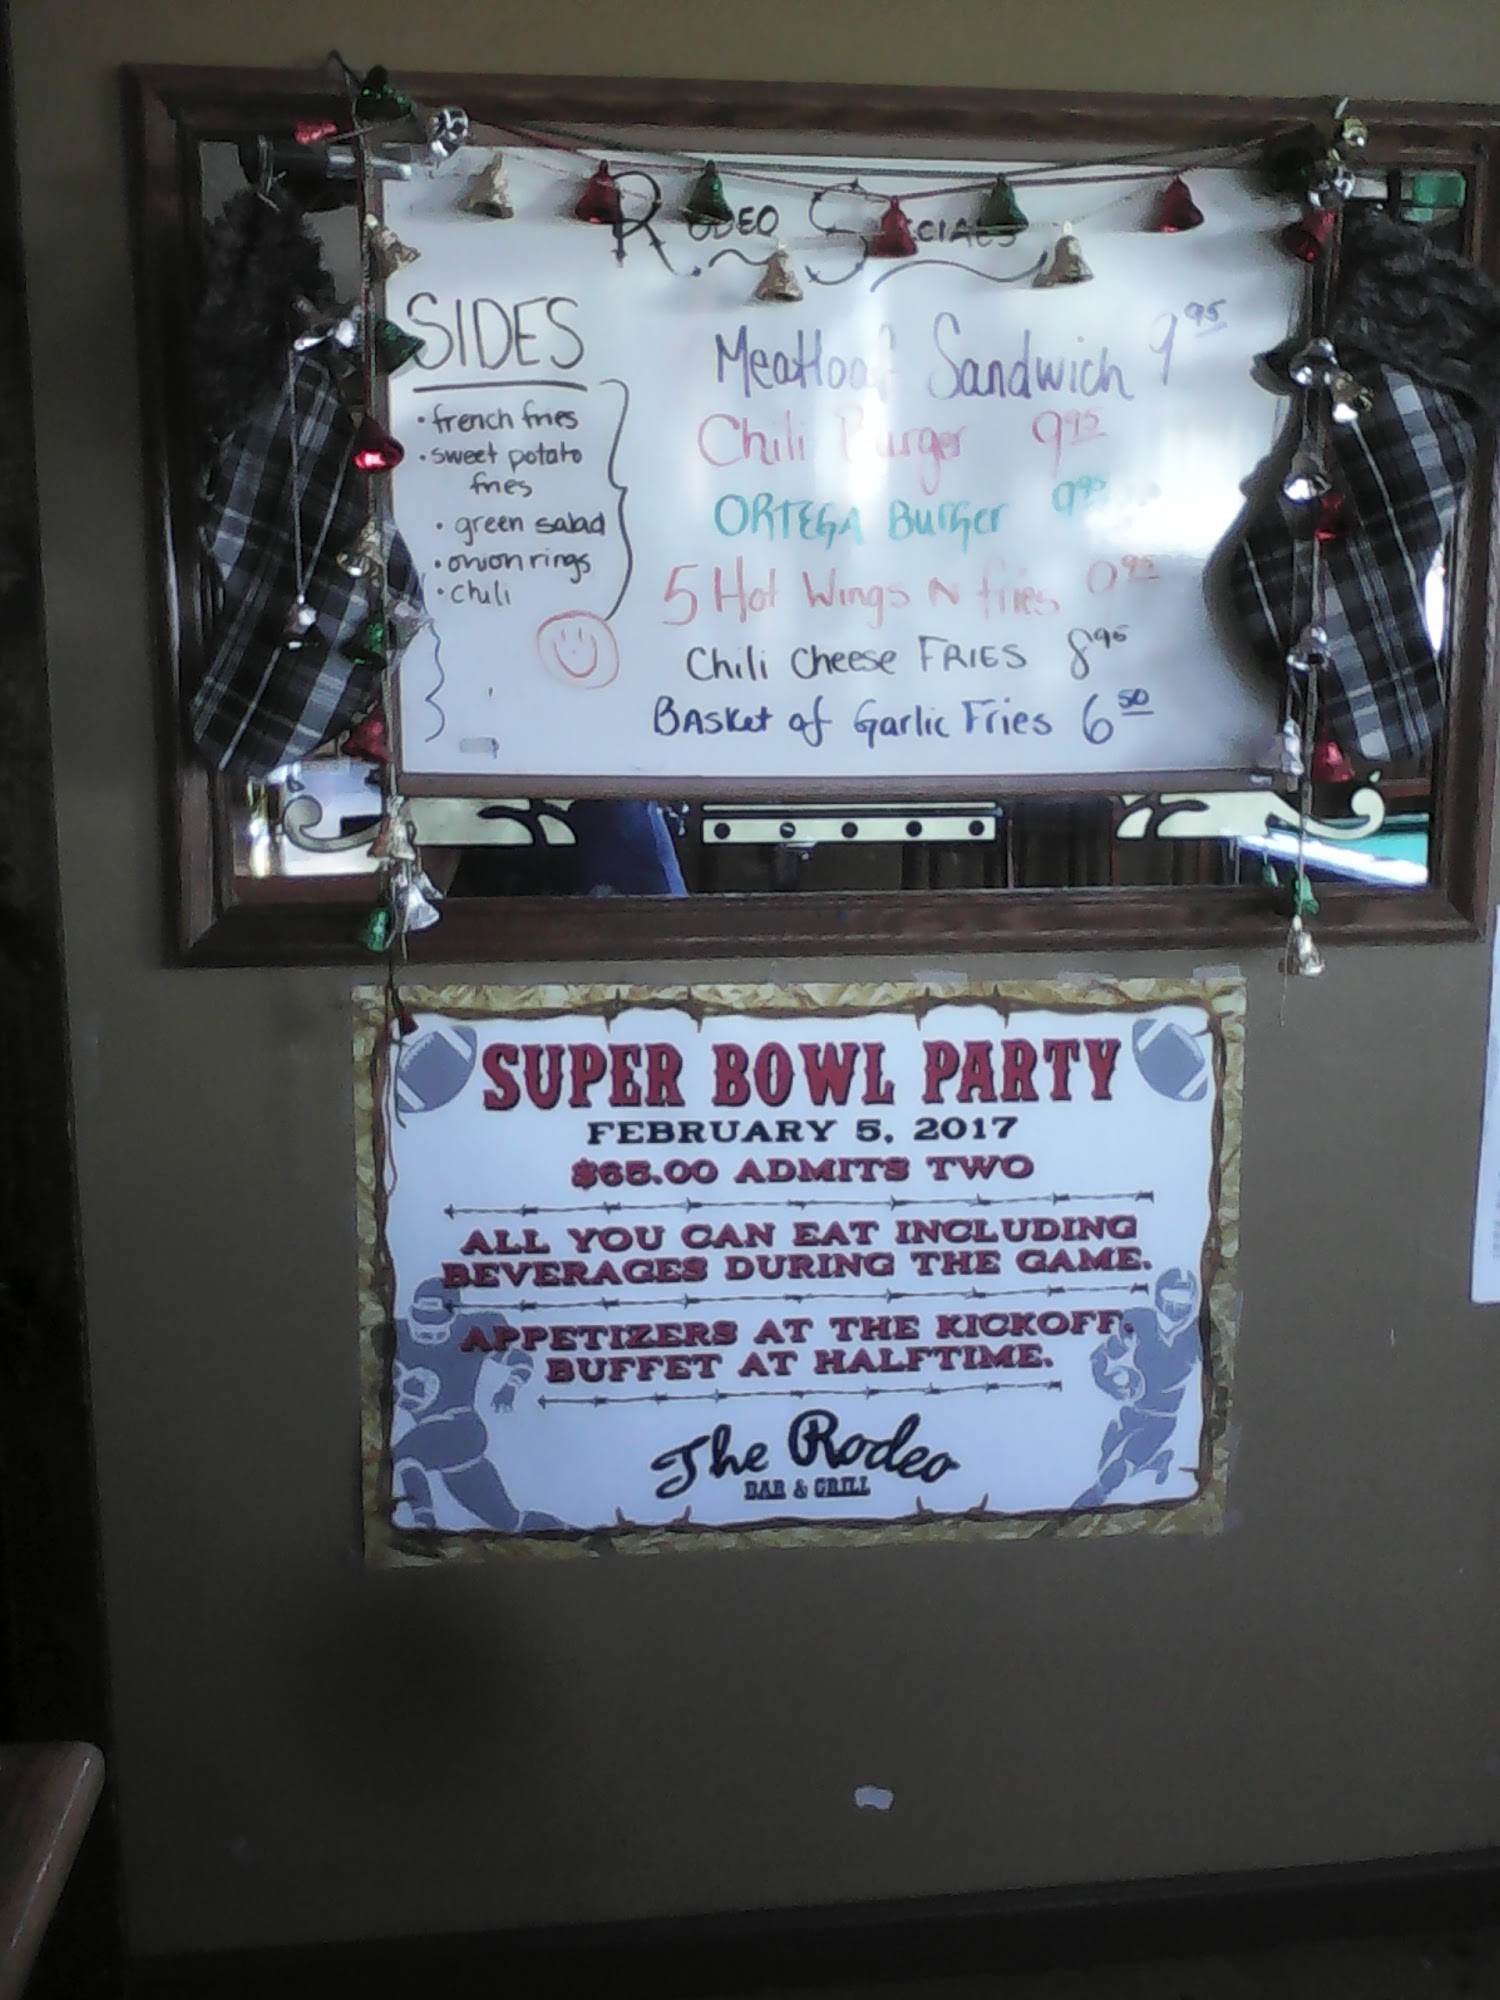 Rodeo Specials
SIDES
• french fries
• sweet potato
fries
• green salad
• onion rings
• chili
Meatloaf Sandwich 9.95
Chili Burger 9.95
ORTEGA Burger 9.95
5 Hot Wings N fries 9.95
Chili Cheese FRIES 8.95
Basket of Garlic Fries 6.50
SUPER BOWL PARTY
FEBRUARY 5, 2017
$65.00 ADMITS TWO
ALL YOU CAN EAT INCLUDING
BEVERAGES DURING THE GAME.
APPETIZERS AT THE KICKOFF.
BUFFET AT HALFTIME.
The Rodeo
BAR & GRILL